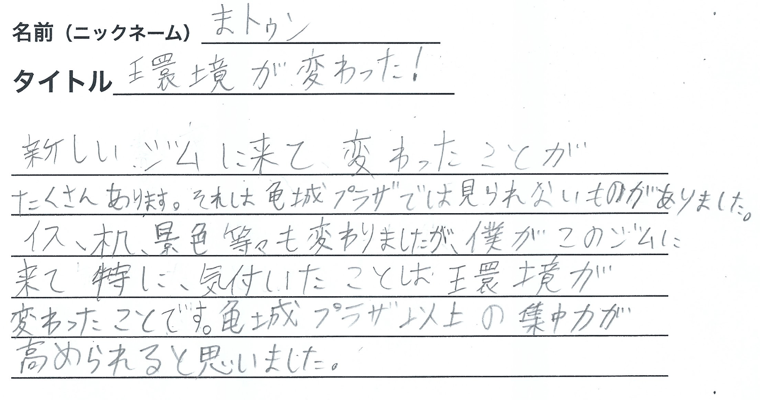 名前（ニックネーム） まトゥン
タイトル 環境が変わった！
新しいジムに来て変わったことが
たくさんあります。それは亀城プラザでは見られないものがありました。
イス、机、景色等々も変わりましたが、僕がこのジムに
来て特に、気付いたことは環境が
変わったことです。亀城プラザ以上の集中力が
高められると思いました。